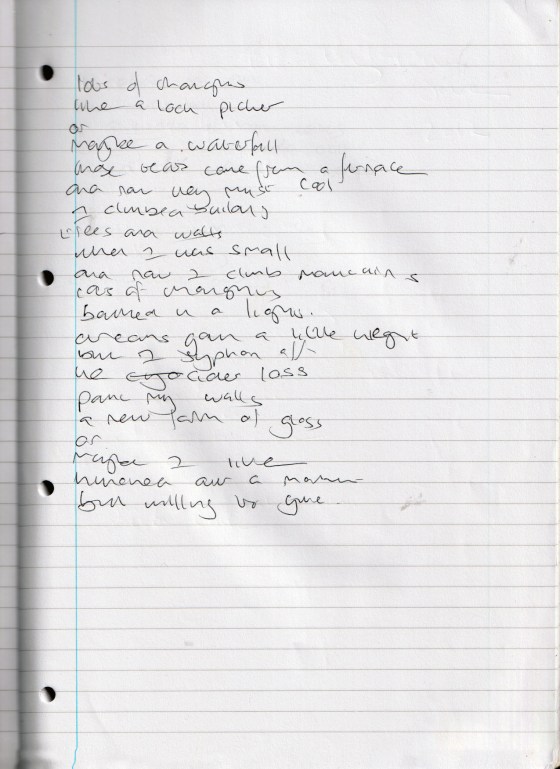 lots of changes
like a lock picker
or
maybe a waterfall
these came from a furnace
and now they must cool
I climbed buildings
trees and walls
when I was small
and now I climb mountains
lots of changes
bathed in a lights.
dreams gain a little weight
but I syphon off
the cider loss
paint my walls
a new form of gloss
or
maybe I like
a
but willing to give.